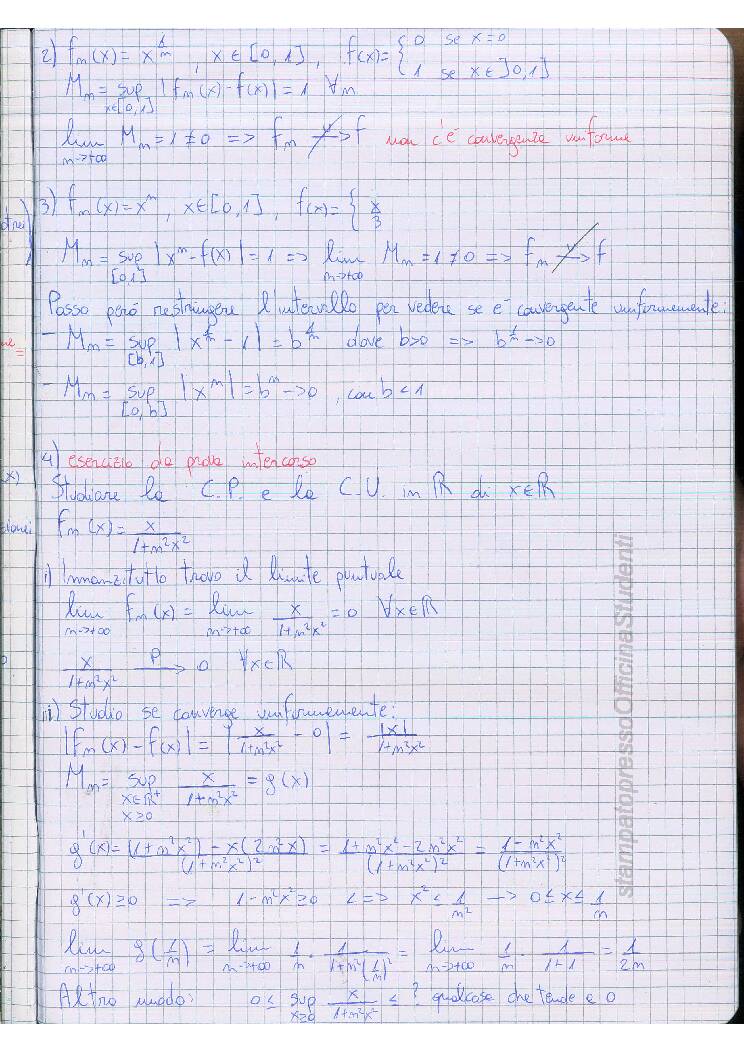 2) fₙ(x) = x^(1/n), x ∈ [0,1], f(x) = { 0 se x=0
1 se x ∈ ]0,1]
Mₙ = sup |fₙ(x) - f(x)| = 1 ∀n
x∈[0,1]
lim Mₙ = 1 ≠ 0 => fₙ -/-> f non c'è convergenza uniforme
n→+∞
3) fₙ(x) = xⁿ, x ∈ [0,1], f(x) = {
Mₙ = sup |xⁿ - f(x)| = 1 => lim Mₙ = 1 ≠ 0 => fₙ -/-> f
[0,1] n→+∞
Posso però restringere l'intervallo per vedere se è convergente uniformemente:
- Mₙ = sup |x^(1/n) - 1| = b^(1/n) dove b>0 => b^(1/n) → 0
[b,1]
- Mₙ = sup |xⁿ| = bⁿ → 0, con b < 1
[0,b]
4) esercizio da prova intercorso
Studiare la C.P. e la C.U. in ℝ di x∈ℝ
fₙ(x) = x / (1+n²x²)
i) Innanzitutto trovo il limite puntuale
lim fₙ(x) = lim x / (1+n²x²) = 0 ∀x∈ℝ
n→+∞ n→+∞
x / (1+n²x²) —P→ 0 ∀x∈ℝ
ii) Studio se converge uniformemente:
|fₙ(x) - f(x)| = |x / (1+n²x²) - 0| = |x| / (1+n²x²)
Mₙ = sup x / (1+n²x²) = g(x)
x∈ℝ⁺
x≥0
g'(x) = ((1+n²x²) - x(2n²x)) / (1+n²x²)² = (1+n²x²-2n²x²) / (1+n²x²)² = (1-n²x²) / (1+n²x²)²
g'(x) ≥ 0 => 1-n²x² ≥ 0 <=> x² ≤ 1/n² → 0 ≤ x ≤ 1/n
lim g(1/n) = lim 1/n · 1 / (1+n²(1/n)²) = lim 1/n · 1 / (1+1) = 1/2n
n→+∞ n→+∞ n→+∞
Altro modo: 0 ≤ sup x / (1+n²x²) ≤ ? qualcosa che tende a 0
x≥0
stampatopressoOfficinaStudenti